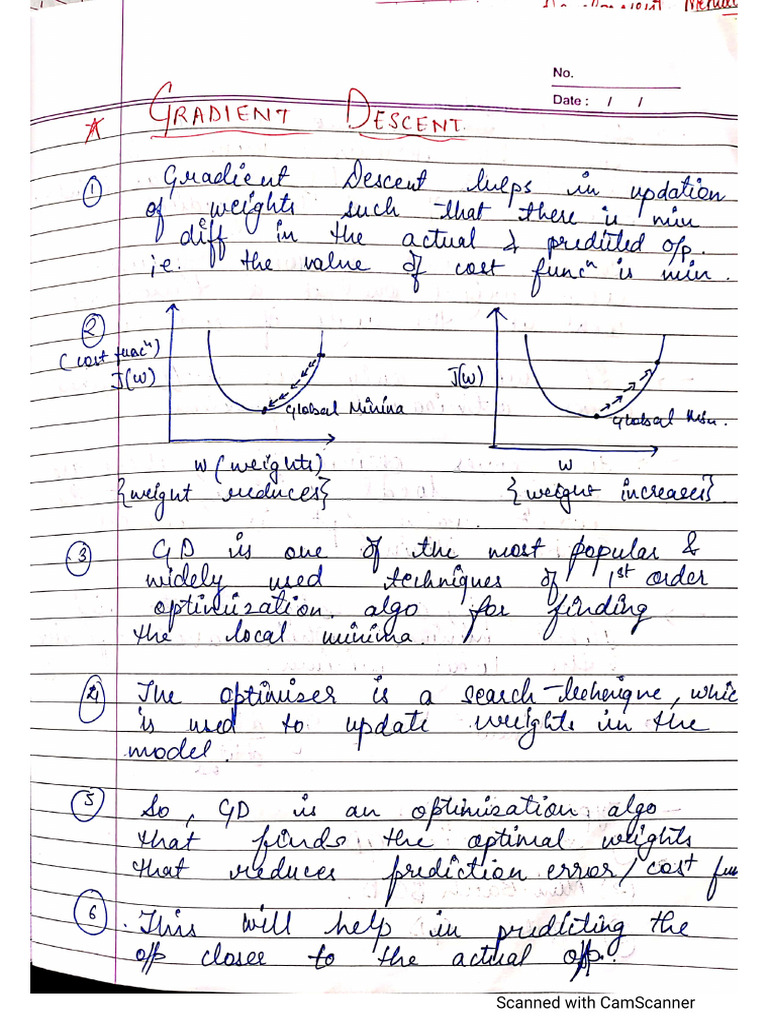 No.
Date : / /
☆ GRADIENT DESCENT
① Gradient Descent helps in updation
of weights such that there is min
diffe in the actual & predicted o/p.
i.e. the value of cost funcⁿ is min.
②
(cost funcⁿ)
J(w)
Global Minima
w (weights)
{weight reduces}
J(w)
Global Min.
w
{weight increases}
③ GD is one of the most popular &
widely used techniques of 1st order
optimization algo for finding
the local minima.
④ The optimiser is a search technique, whic
is used to update weights in the
model.
⑤ So, GD is an optimization algo
that finds the optimal weights
that reduces prediction error/cost fun
⑥ . This will help in predicting the
o/p closer to the actual o/p.
Scanned with CamScanner